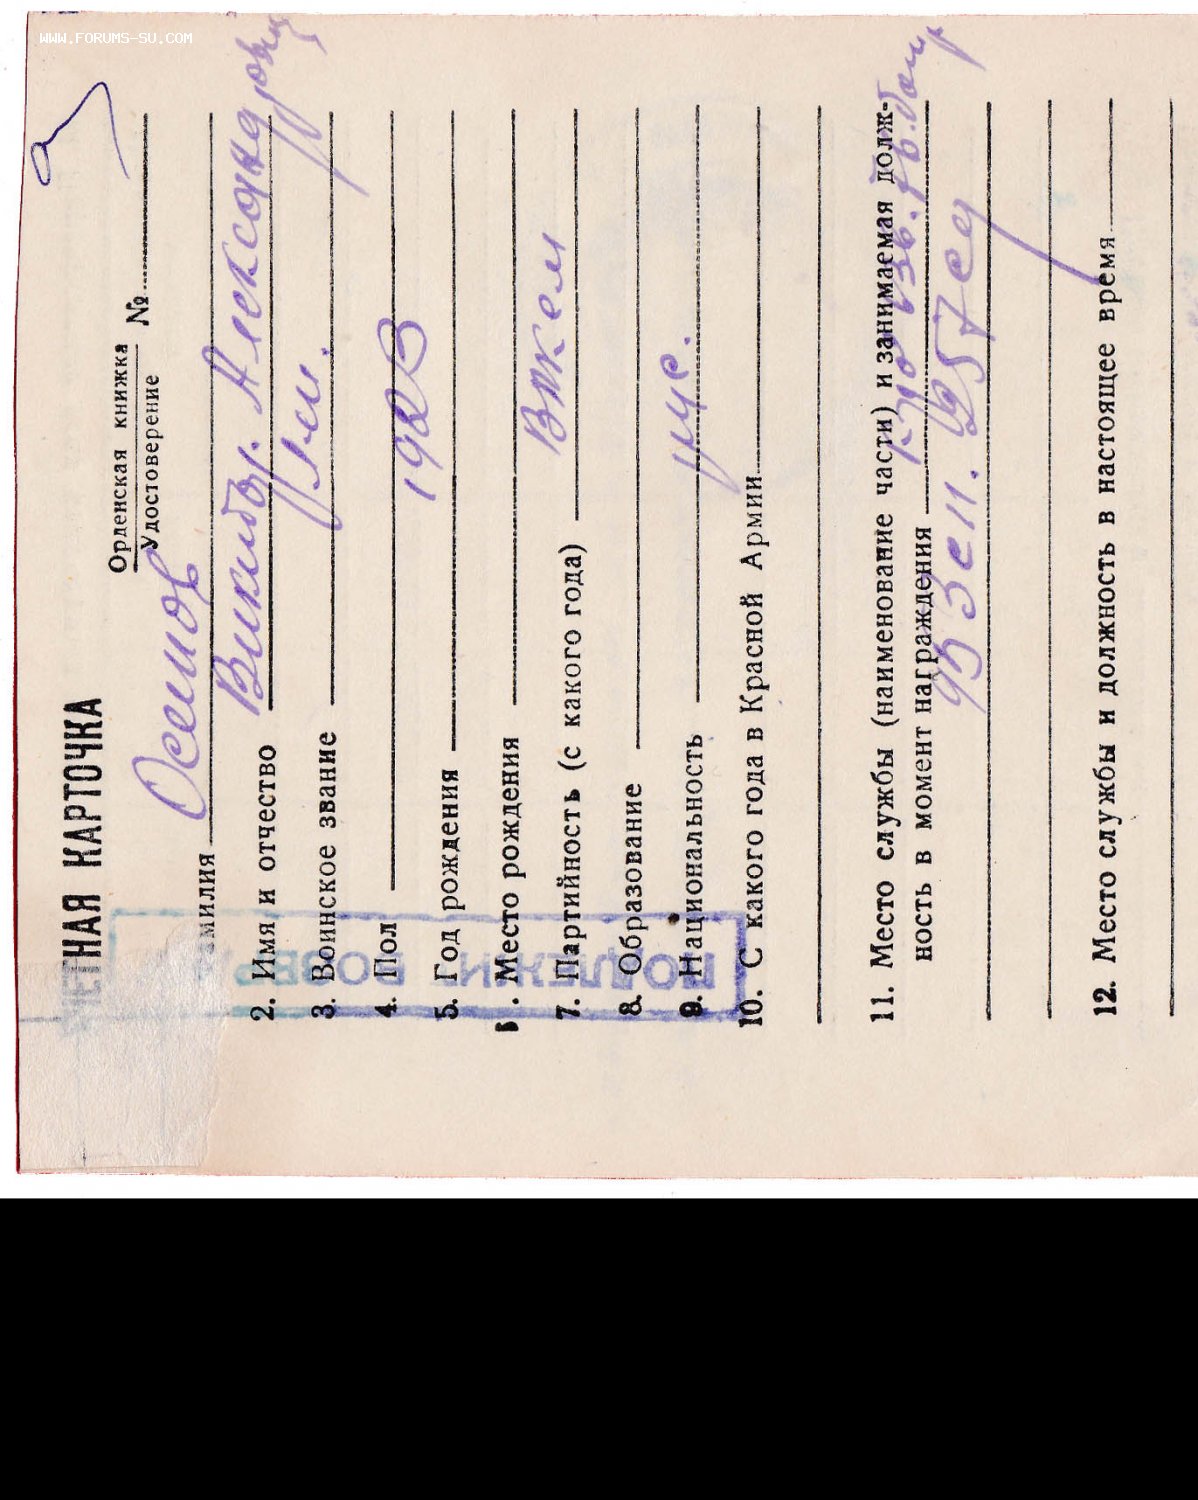 WWW.FORUMS-SU.COM
НАЯ КАРТОЧКА
Орденская книжка
Удостоверение №
амилия Осипов
2. Имя и отчество Виктор Александрович
3. Воинское звание
4. Пол
5. Год рождения 1923
. Место рождения
7. Партийность (с какого года) ВЛКСМ
8. Образование
9. Национальность рус.
10. С какого года в Красной Армии
11. Место службы (наименование части) и занимаемая долж-
ность в момент награждения
953 сп. 257 сд
12. Место службы и должность в настоящее время